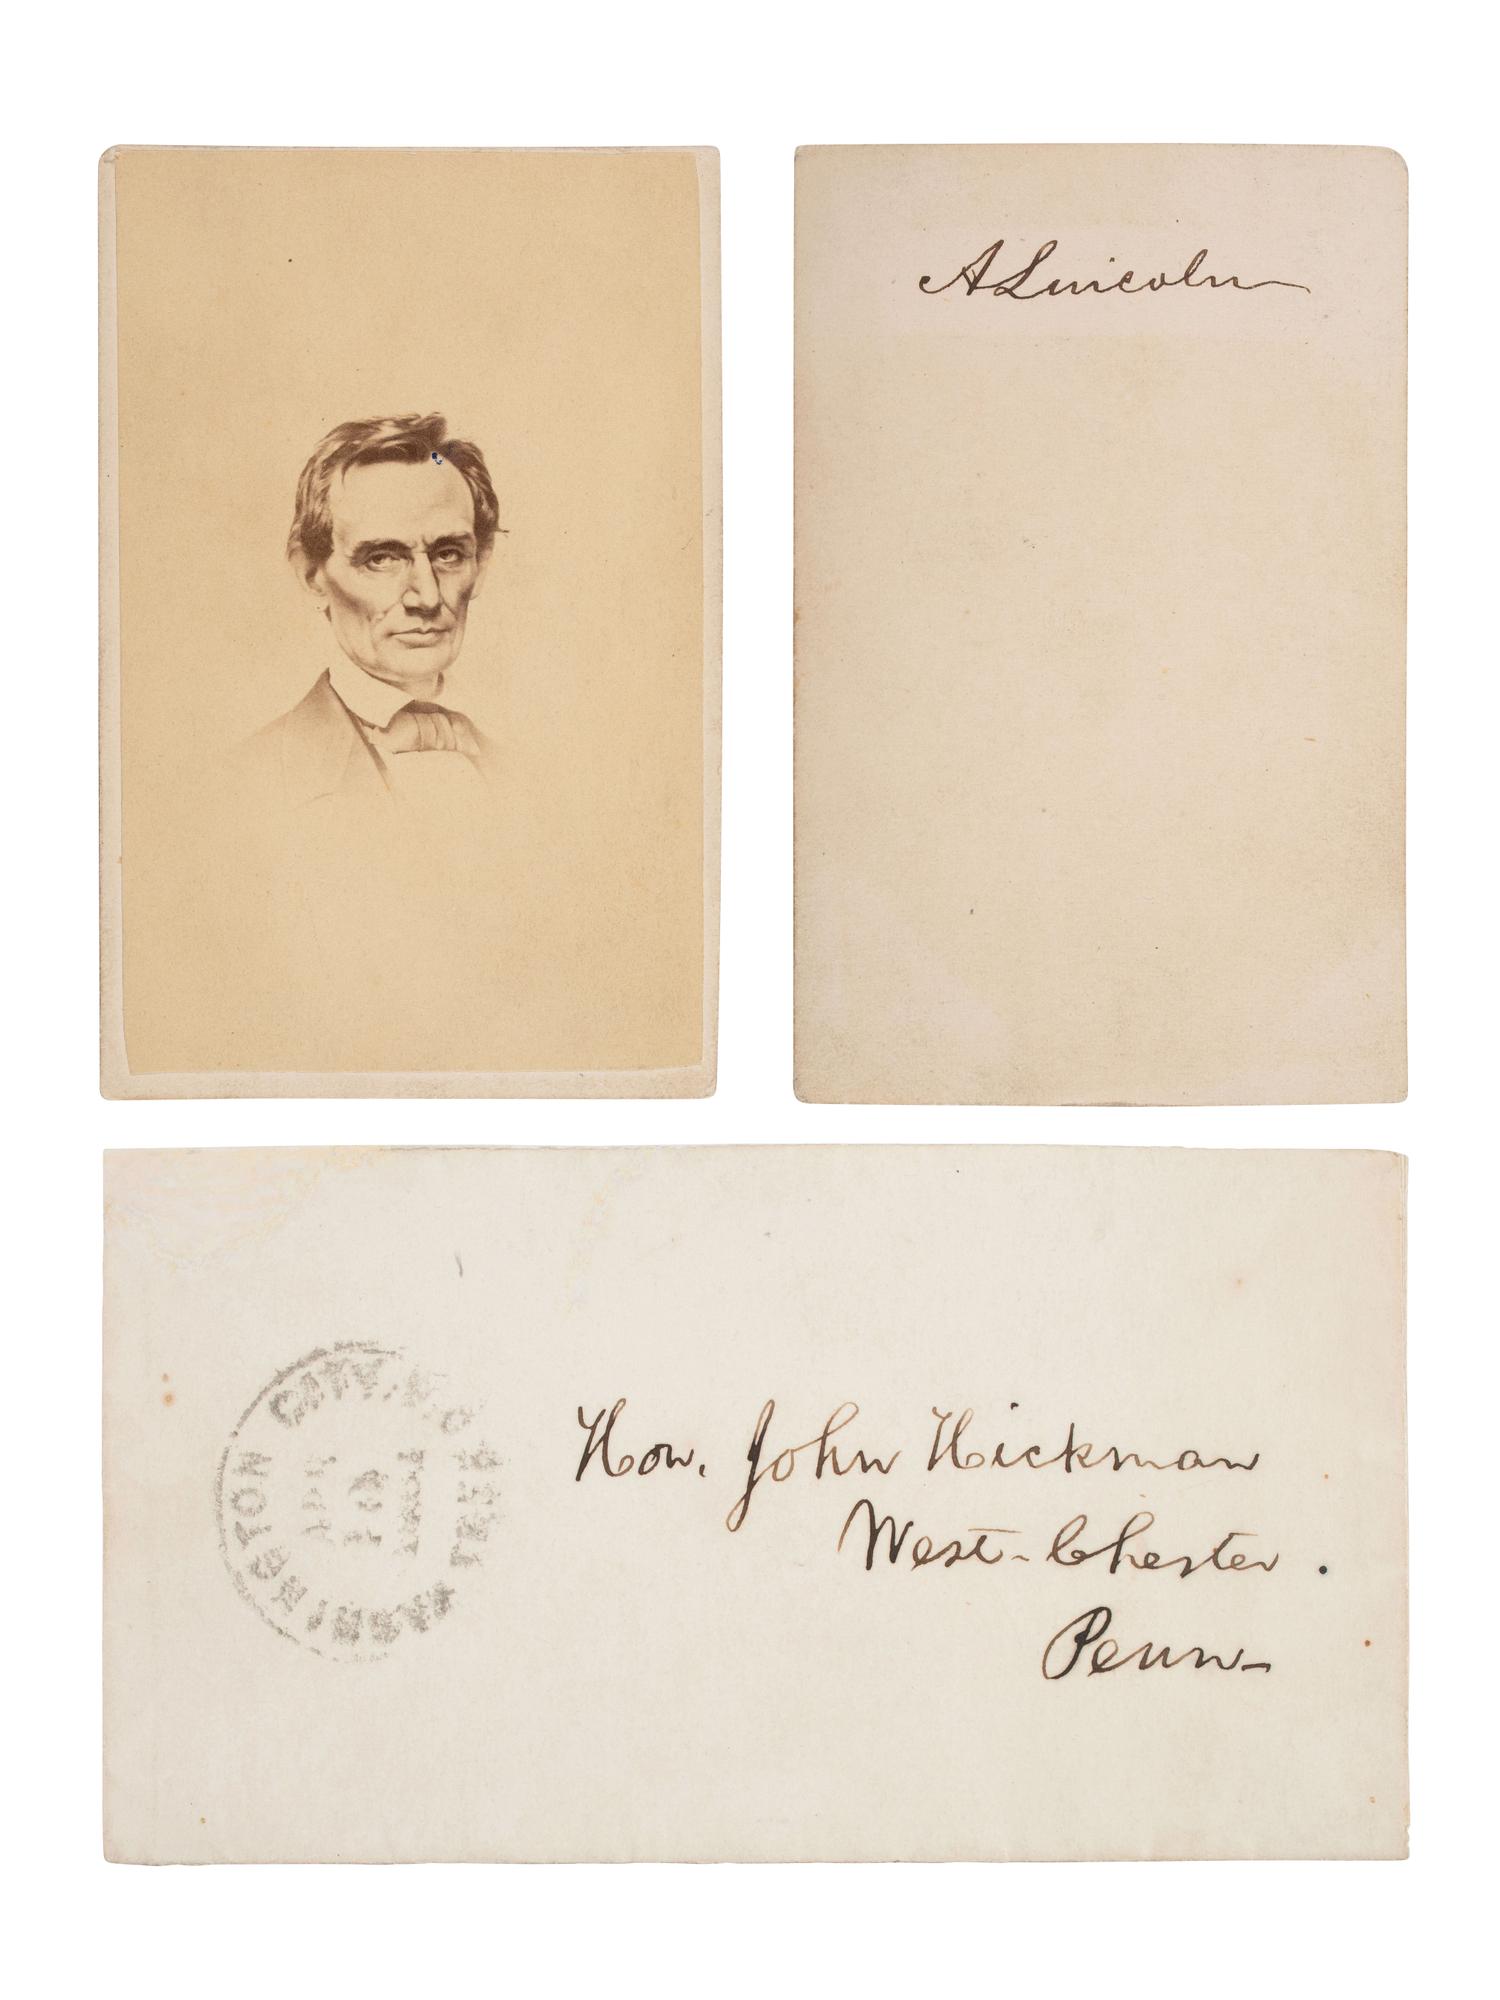 A Lincoln
WASHINGTON CITY, D.C.
APR
10
Hon. John Hickman
West-Chester.
Penn-